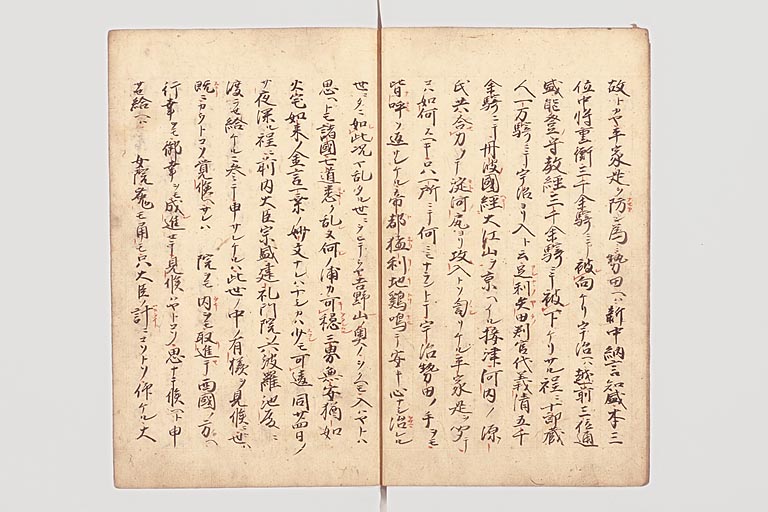 平家是ヲ防ン爲ニ勢田ヘハ新中納言知盛本三
位中将重衡三千余騎ニテ被向ケリ宇治ヘハ越前三位通
盛能登守教経三千余騎ニテ被下ケリサル程ニ十郎蔵
人一万騎ニテ宇治ヨリ入ト云足利矢田判官代義清五千
余騎ニテ丹波國経大江山ヲ京ヘハイル摂津河内ノ源
氏共合力シテ淀河尻ヨリ攻入トソ匂リケル平家是ヲ聞テ
コハ如何スヘキ只一所ニテ何ニモナラントテ宇治勢田ノ手ヲモ
皆呼ソ返サレケル帝都極利地鶏鳴テ安キ心ナシ治レル
世タニ如此况ヤ乱タル世ニヲヒテヲヤ吉野山奥ノ入ハヤトハ
思ヘトモ諸國七道悉ク乱ヌ何ノ浦カ可穏三界無安猶如
火宅如来ノ金言一乗ノ妙文ナレハナシカハ少モ可違同廿四日ノ
サ夜深ル程ニ前内大臣宗盛建礼門院六波羅池殿ニ
渡ラセ給ケルニ参テ申サレケルハ此世ノ中ノ有様ヲ見候ニ世ハ
既ニカウトコソ覚候ヘサレハ 院ヲモ内ヲモ取進テ西國ノ方ヘ
行幸ヲモ御幸ヲモ成進セテ見候ハヤトコソ思ナテ候ヘト申
給ヘハ 女院菟モ角モ只大臣ノ計ニコソトソ仰ケル大